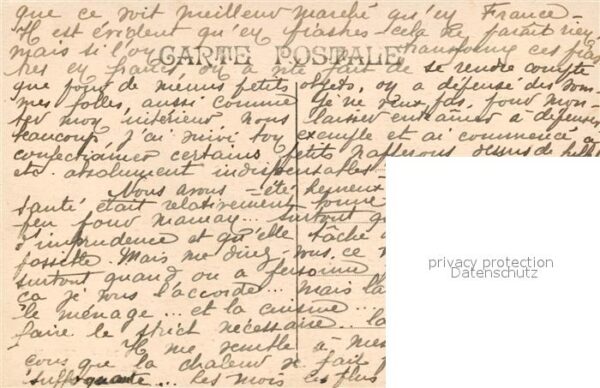 que ce soit meilleur marché qu'en France.
Il est évident qu'en piastres cela ne paraît rien
mais si l'on transforme ces pias
CARTE POSTALE
tres en francs on a vite fait de se rendre compte
que pour de menus petits objets, on a dépensé des som
mes folles, aussi comme je ne veux pas, pour mon
ter mon intérieur nous laisser entraîner à dépenser
beaucoup, j'ai suivi ton exemple et ai commencé à
confectionner certains petits napperons dessus de
etc. absolument indispensables
Nous avons été heureux
santé était relativement bonne
peu pour maman... surtout
d'imprudence et qu'elle tâche
possible. Mais me direz-vous, ce
surtout quand on a personne
ça je vous l'accorde... mais la
le ménage... et la cuisine...
faire le strict nécessaire... la
Il me semble à mes
cous que la chaleur se fait
suffocante... Les mois les plus
privacy protection
Datenschutz